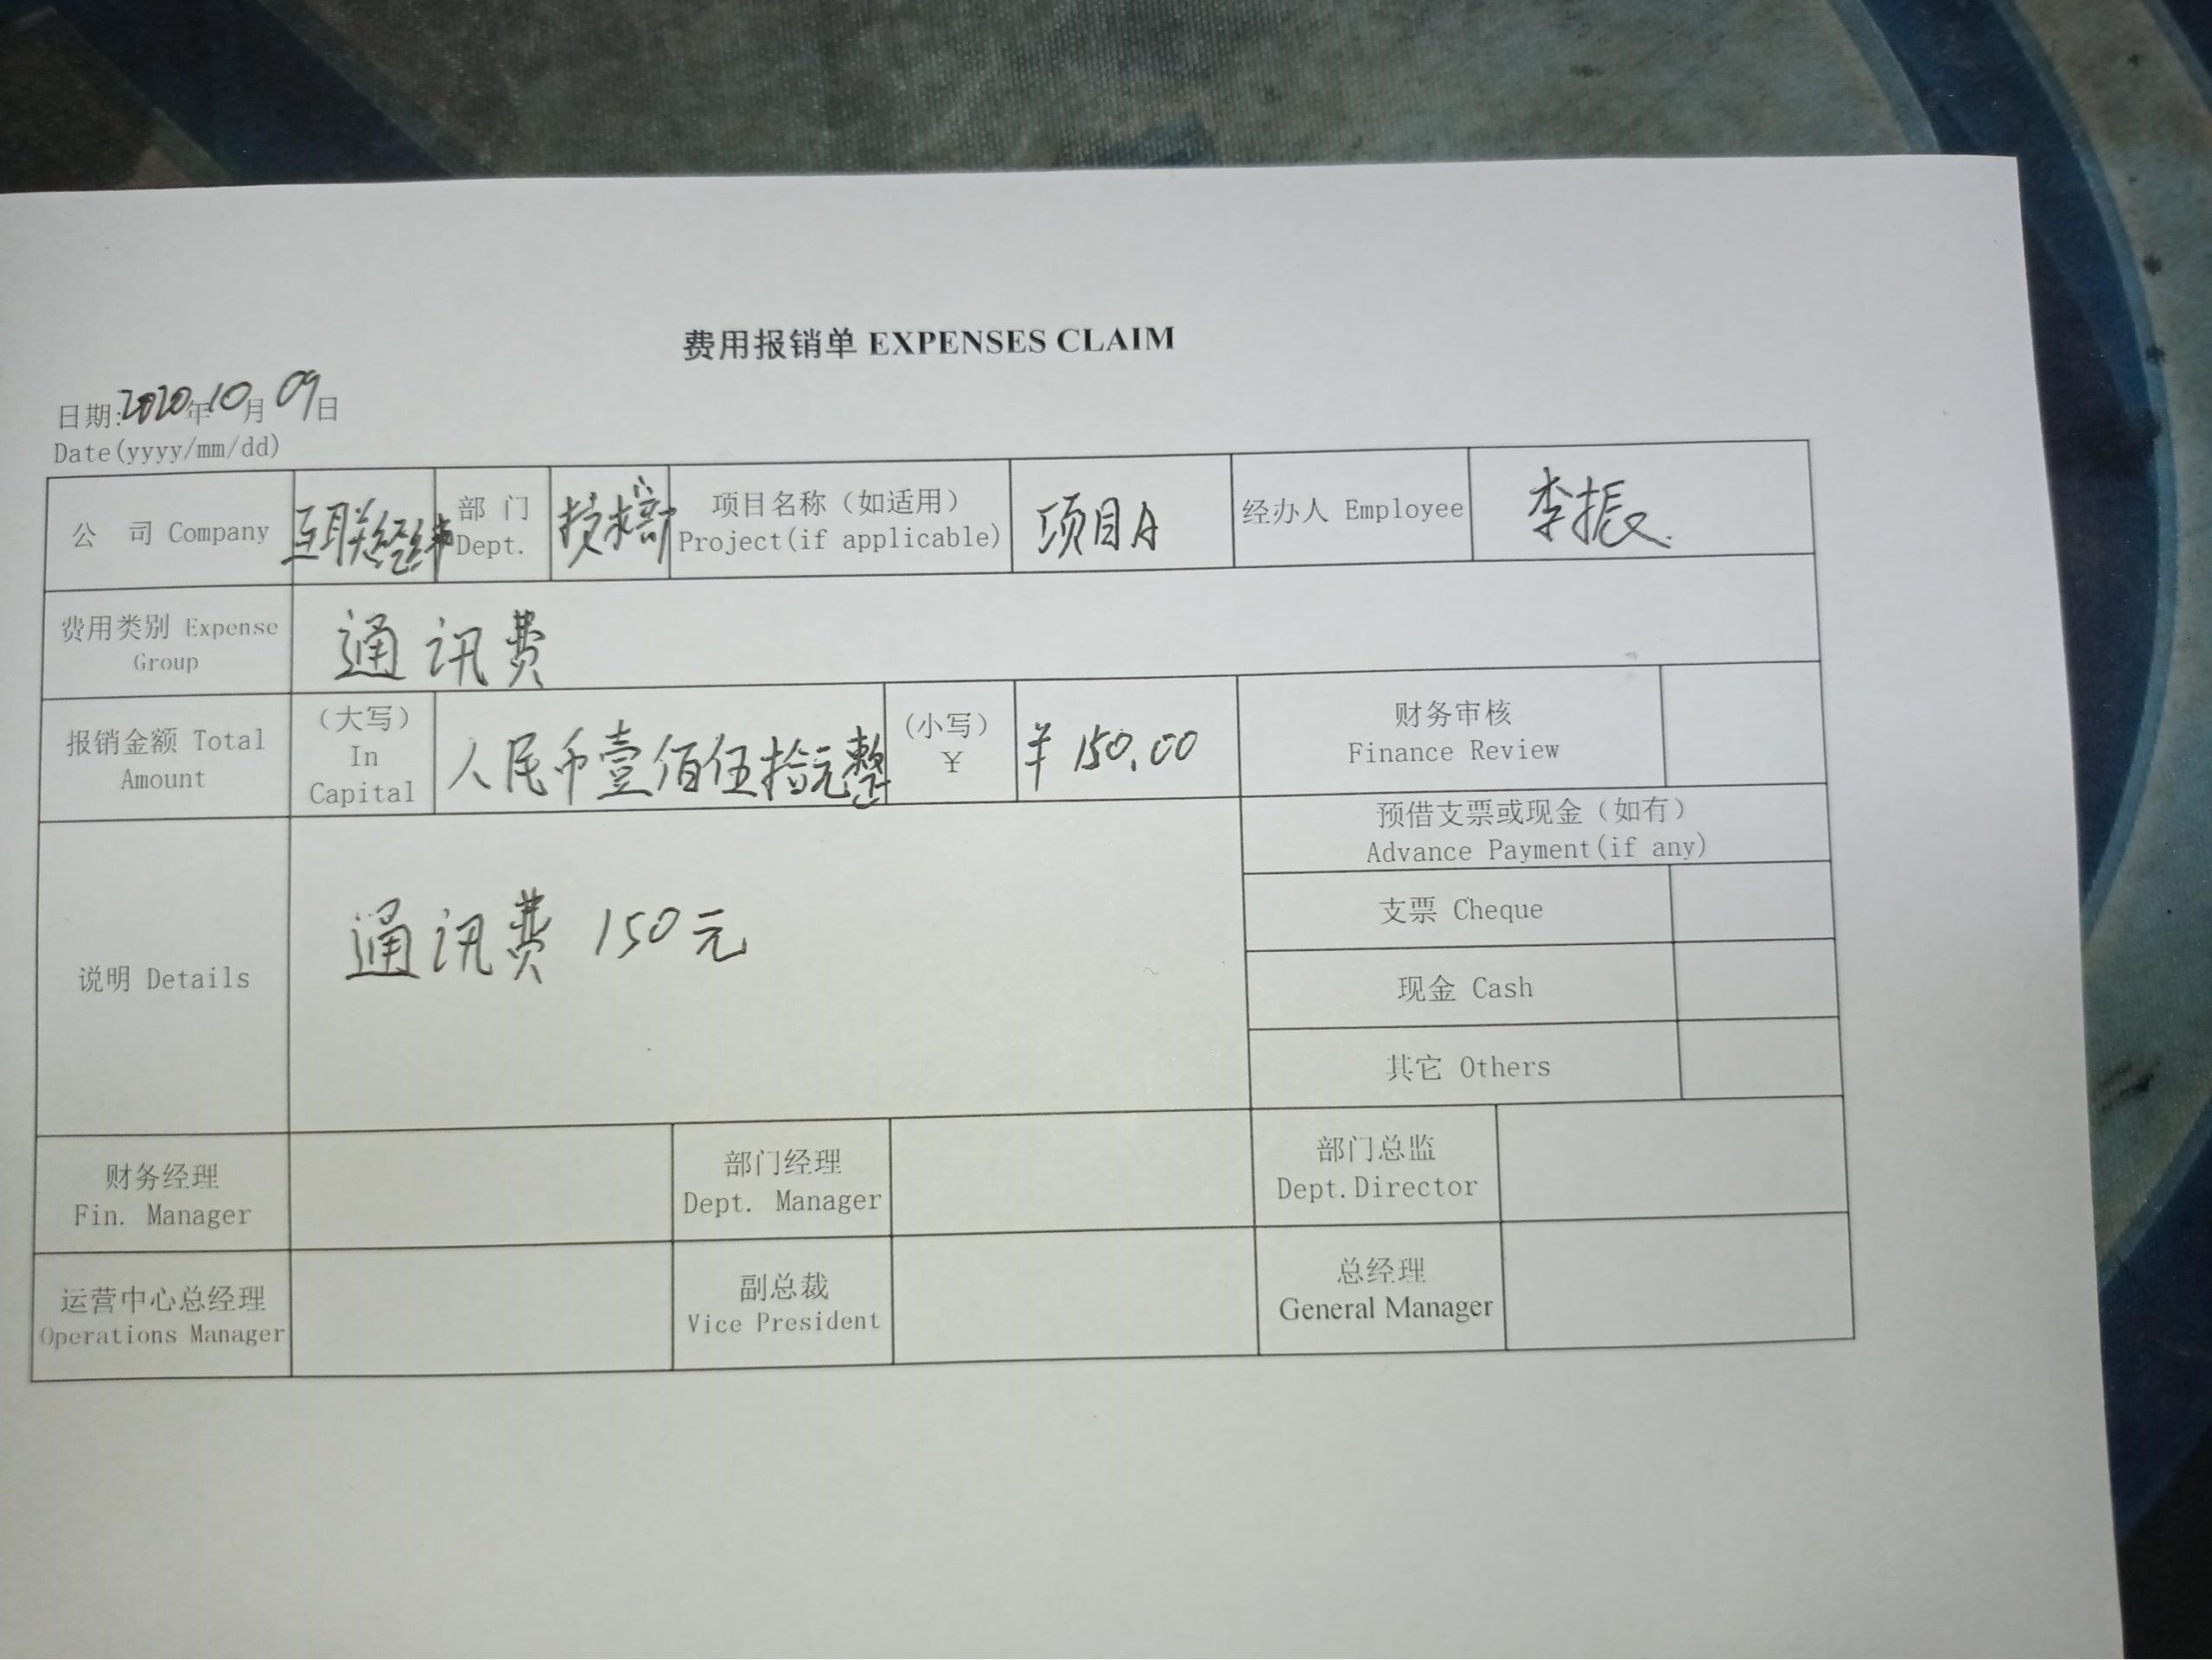 费用报销单 EXPENSES CLAIM
日期:2020年10月09日
Date(yyyy/mm/dd)
公 司 Company
互联经纬
部 门
Dept.
技术部
项目名称（如适用）
Project(if applicable)
项目A
经办人 Employee
李振
费用类别 Expense
Group
通讯费
报销金额 Total
Amount
（大写）
In
Capital
人民币壹佰伍拾元整
（小写）
¥
¥ 150.00
财务审核
Finance Review
预借支票或现金（如有）
Advance Payment(if any)
说明 Details
通讯费 150元
支票 Cheque
现金 Cash
其它 Others
财务经理
Fin. Manager
部门经理
Dept. Manager
部门总监
Dept.Director
运营中心总经理
Operations Manager
副总裁
Vice President
总经理
General Manager